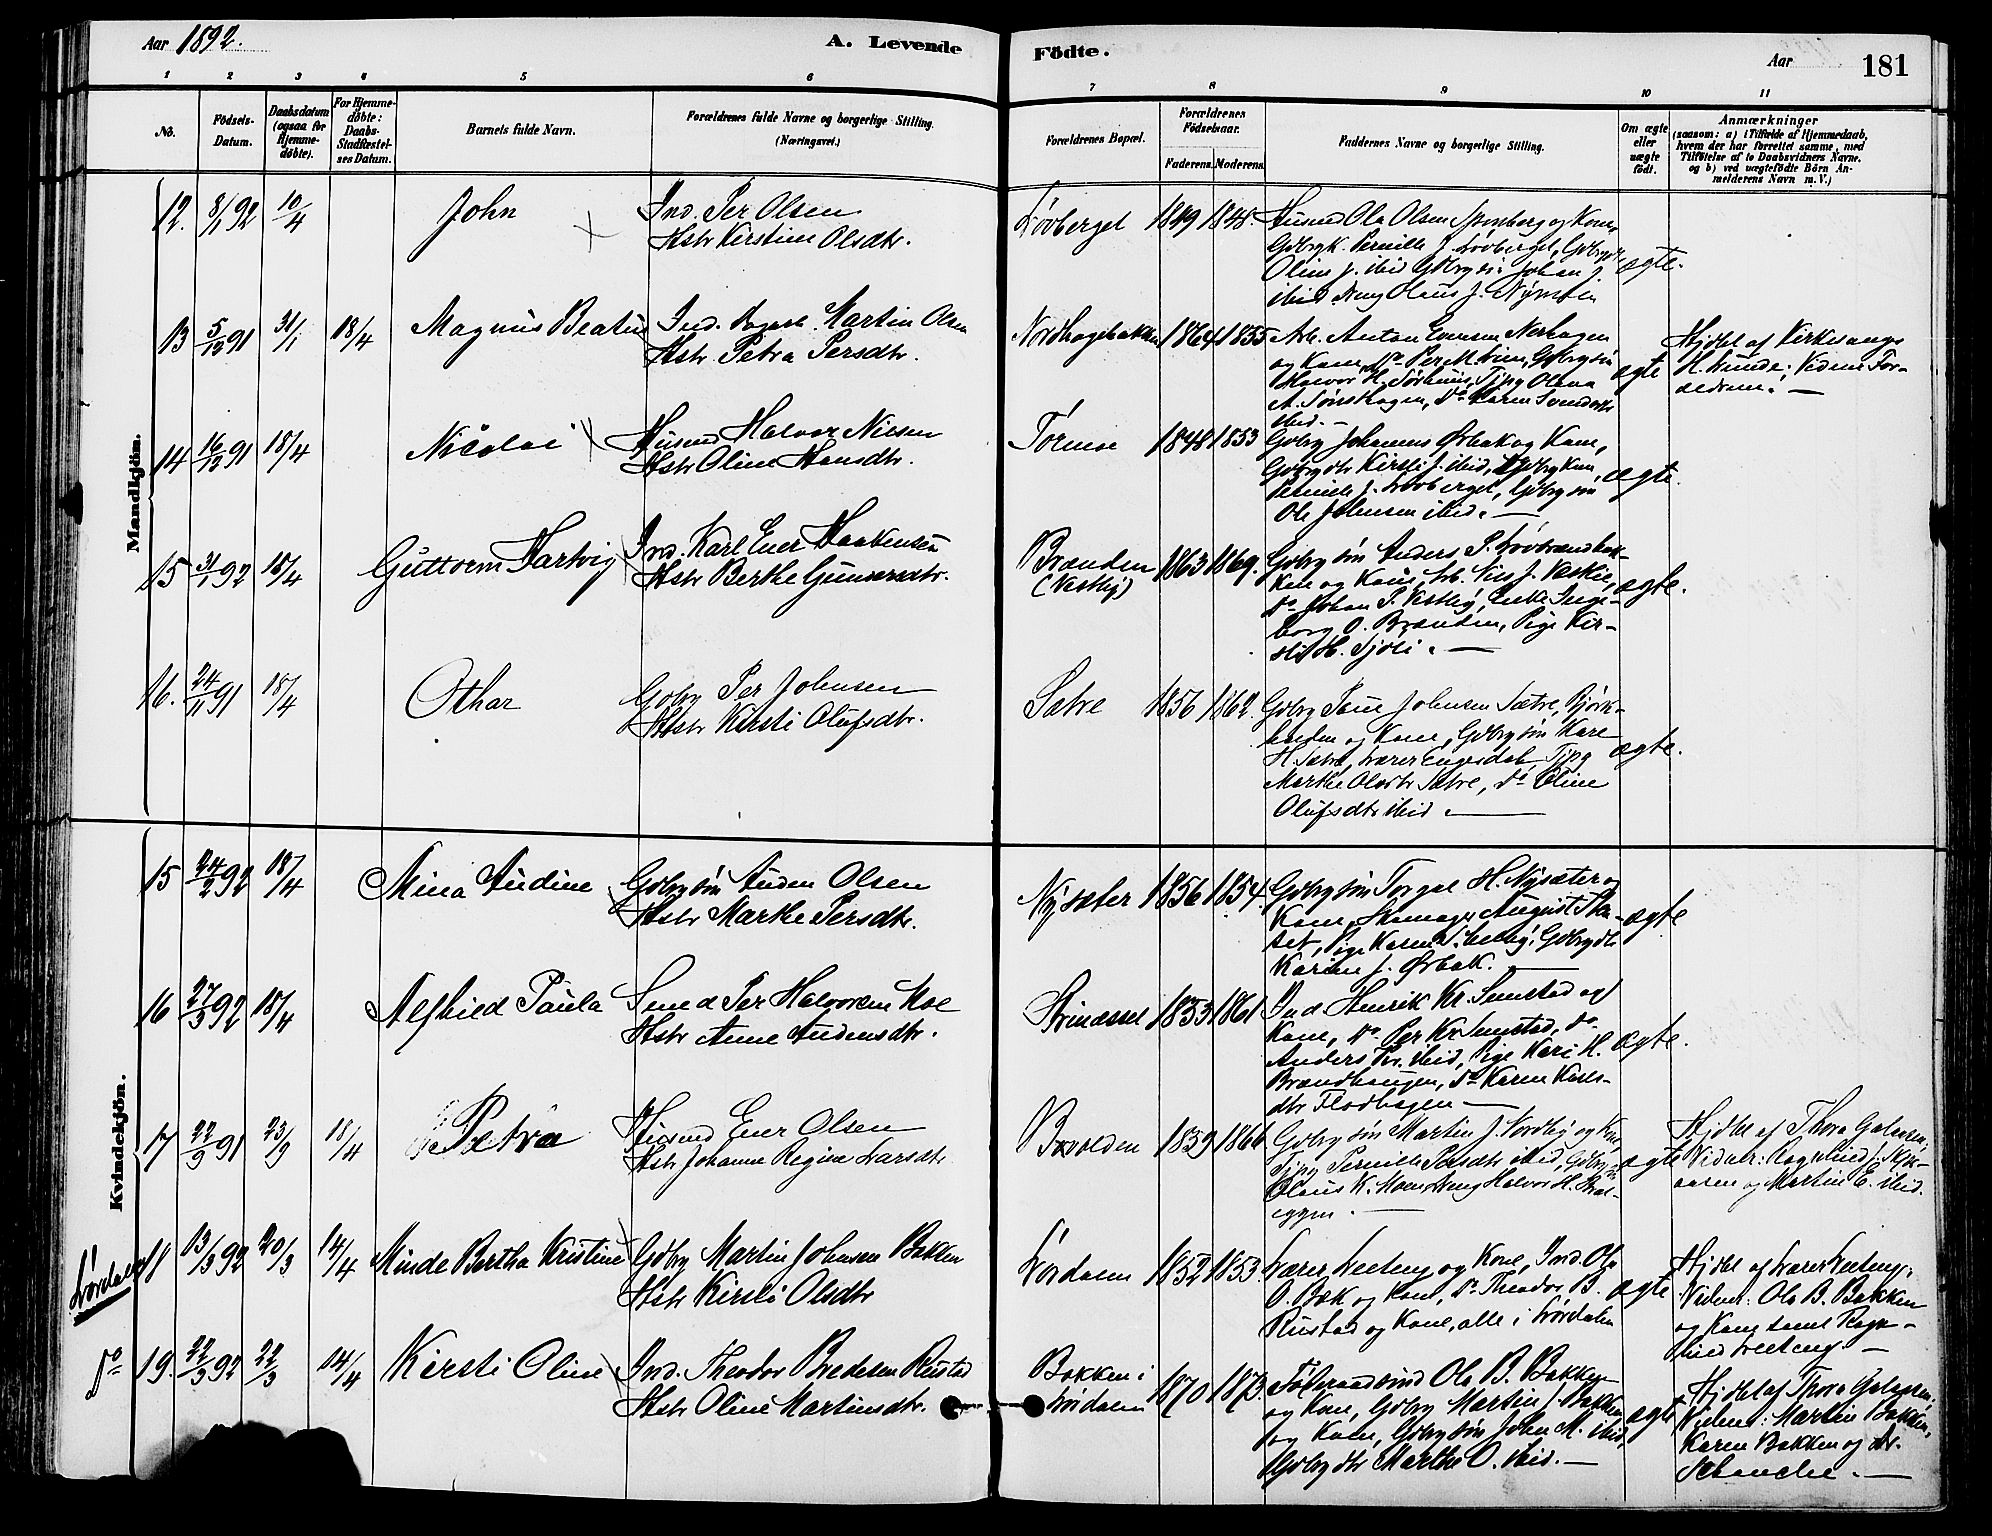 Aar 1892.
A. Levende
Födte.
Aar
181
1 2 3 4 5 6
7 8 9 10 11
No.
Födsels-Datum.
Daabsdatum (ogsaa for Hjemme-döbte).
For Hjemme-döbte: Daabs-Stadfæstel-ses Datum.
Barnets fulde Navn.
Forældrenes fulde Navne og borgerlige Stilling. (Næringsvei.)
Forældrenes Bopæl.
Forældrenes Födselsaar.
Faderens. Moderens.
Faddernes Navne og borgerlige Stilling.
Om ægte eller uægte födt.
Anmærkninger
(saasom: a) i Tilfælde af Hjemmedaab,
hvem der har forrettet samme, med
Tilföielse af to Daabsvidners Navne.
og b) ved uægtefödte Börn An-
melderens Navn m. V.)
Mandkjön.
12. 8/1 92 10/4 John Ind. Per Olsen
Hstr Kerstine Olsdtr.
Lövberget 1849 1848. Husmd Ola Olsen Spónberg og Kone,
Gdbrgk. Pernille J. Lövberget, Gdbrgdtr
Oline J. ibid Gdbrgsön Johan J.
ibid Ung Olaus J.
ægte.
13 5/12 91 31/1 18/4 Magnus Beatus Ind. Martin Olsen
Hstr. Petra Persdtr.
Nordhagebakken 1864 1855 Arb. Anton Evensen Norhagen
og Kone, Do Per M. Gdbrgsön
Halvor H. Tjpg Olava
A. Do Karen
ibid. —
ægte
Hjdbt af Kirkesanger
H. Lunde. Vidner For-
ældrene. —
14 16/12 91 18/4 Nicolai Husmd Halvor Nilsen
Hstr Oline Hansdtr.
Törmoe 1848 1853 Gdbrg Johannes Ørbæk og Kone,
Gdbrgdtr Kirsti J. ibid, Gdbrgkone
Pernille J. Lövberget, Gdbrgsön
Ole Johnsen ibid. —
ægte.
15 31/1 92 18/4 Guttorm Hartvig Ind. Karl Ener Haakensen
Hstr Berthe Gunersdtr.
Brænden (Vestby) 1863 1869. Gdbrgsön Anders P. Lövbrændbak-
ken og Kone, Arb. Nils J.
Do Johan P. Vestby, Enke Inge-
borg O. Brænden, Pige Kir-
sti H. Sjöli. —
ægte.
16. 24/11 91 18/4 Othar Gdbrg Per Johnsen
Hstr Kirsti Olufsdtr.
Sætre 1856 1862. Gdbrg Paul Johnsen Sætre, Björk-
heden og Kone, Gdbrgsön Kare
H. Sætre, Lærer Engerdal, Tjpg
Marthe Olsdtr Sætre, Do Oline
Olufsdtr ibid. —
ægte.
Kvindekjön.
15 24/2 92 18/4 Mina Audine Gdbrgsön Auden Olsen
Hstr Marthe Persdtr.
Nysæter 1856 1854. Gdbrgsön Torgal H. Nysæter og
Kone, Skomager August
Pige Karen Gdbrgdtr
Karen J. Ørbæk. —
ægte
16 27/3 92 18/4 Alfhild Paula Smed Per Halvorsen Moe
Hstr Anne Audensdtr.
Strinæsset 1853 1861 Ind Henrik Kr. Semstad og
Kone, Do Per Kr. Semstad, Do
Anders Per. ibid, Pige Kari H.
Brændhaugen, Do Karen Karls-
dtr Flodhagen —
ægte.
17 22/9 91 23/9 18/4 Petra Husmd Ener Olsen
Hstr Johanne Regine Larsdtr
Bovolden 1839 1866 Gdbrgsön Martin J. Nordby og Kone,
Tjpg Pernille Persdtr ibid, Gdbrg
Olaus K. Moen, Ung Halvor H.
eggen. —
ægte
Hjdbt af Thora Galaasen.
Vidner: Ragnhild J. Skjæ-
aasen og Martin E. ibid.
Lördalen 18 13/3 92 20/3 14/4 Minde Bertha Kristine Gdbrg Martin Johnsen Bakken
Hstr Kirsti Olsdtr
Lördalen 1852 1853. Lærer Leeteng og Kone, Ind. Ole
O. Bæk og Kone, Do Theodor B.
Rustad og Kone, alle i Lördalen
ægte
Hjdbt af Lærer Leeteng.
Vidner: Ole B. Bakken
og Kone samt Ragn-
hild Leeteng —
Do 19. 22/3 92 22/3 14/4 Kirsti Oline Ind. Theodor Bredesen Rustad
Hstr Oline Martinsdtr.
Bakken i Lördalen 1870 1873. Föderaadsmd Ole B. Bakken
og Kone, Gdbrg Martin J. Bakken
og Kone, Gdbrgsön John M. ibid,
Gdbrgdtr Marthe O. ibid. —
ægte
Hjdbt af Thora Galaasen.
Vidner: Martin Bakken,
Karen Bakken og Dr.
Schanche. —